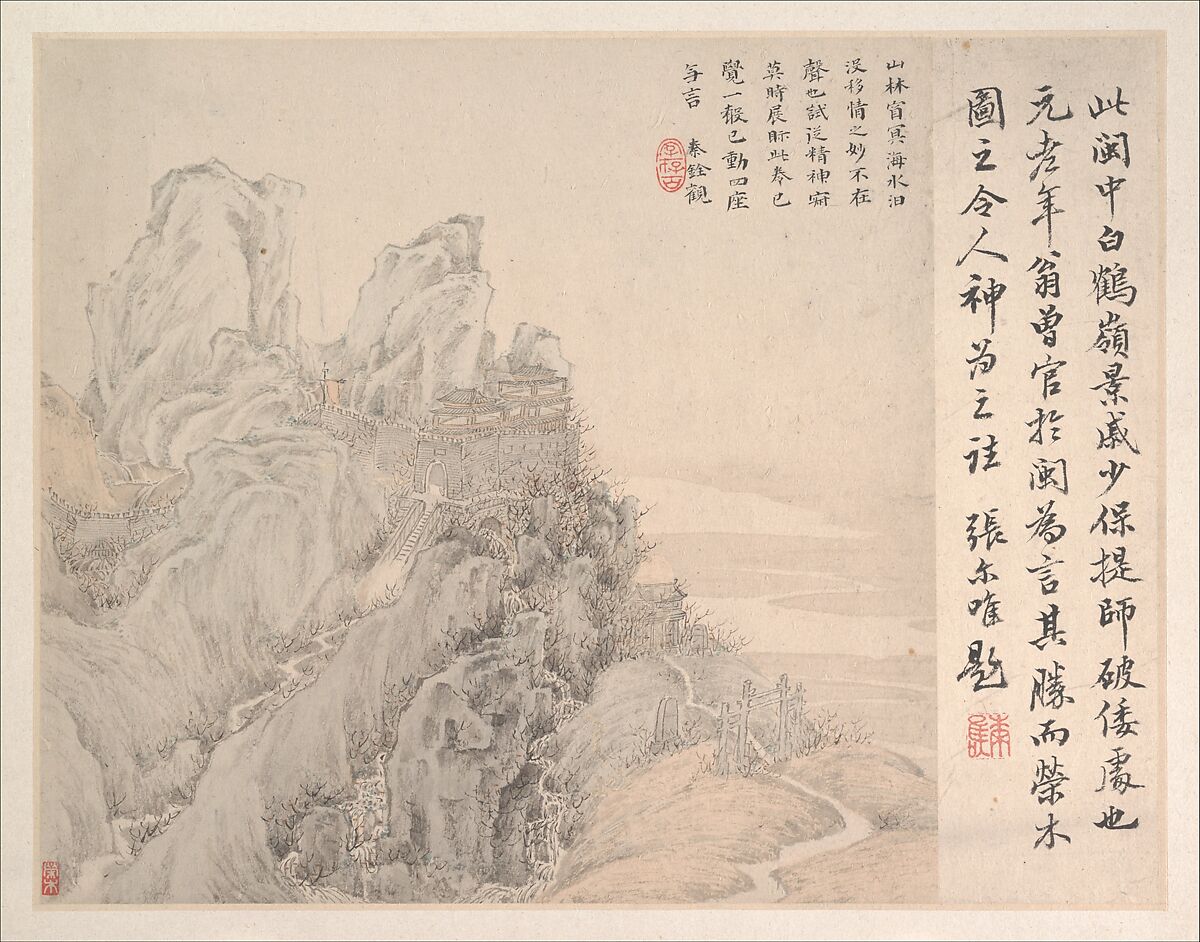 此閩中白鶴嶺景戚少保提師破倭處也
元老年翁曾官於閩為言其勝而榮木
圖之令人神為之往 張尔唯題
山林窅冥海水汩
沒移情之妙不在
聲也試從精神寂
莫時展眎此卷已
覺一般已動四座
無言 秦銓觀
榮木